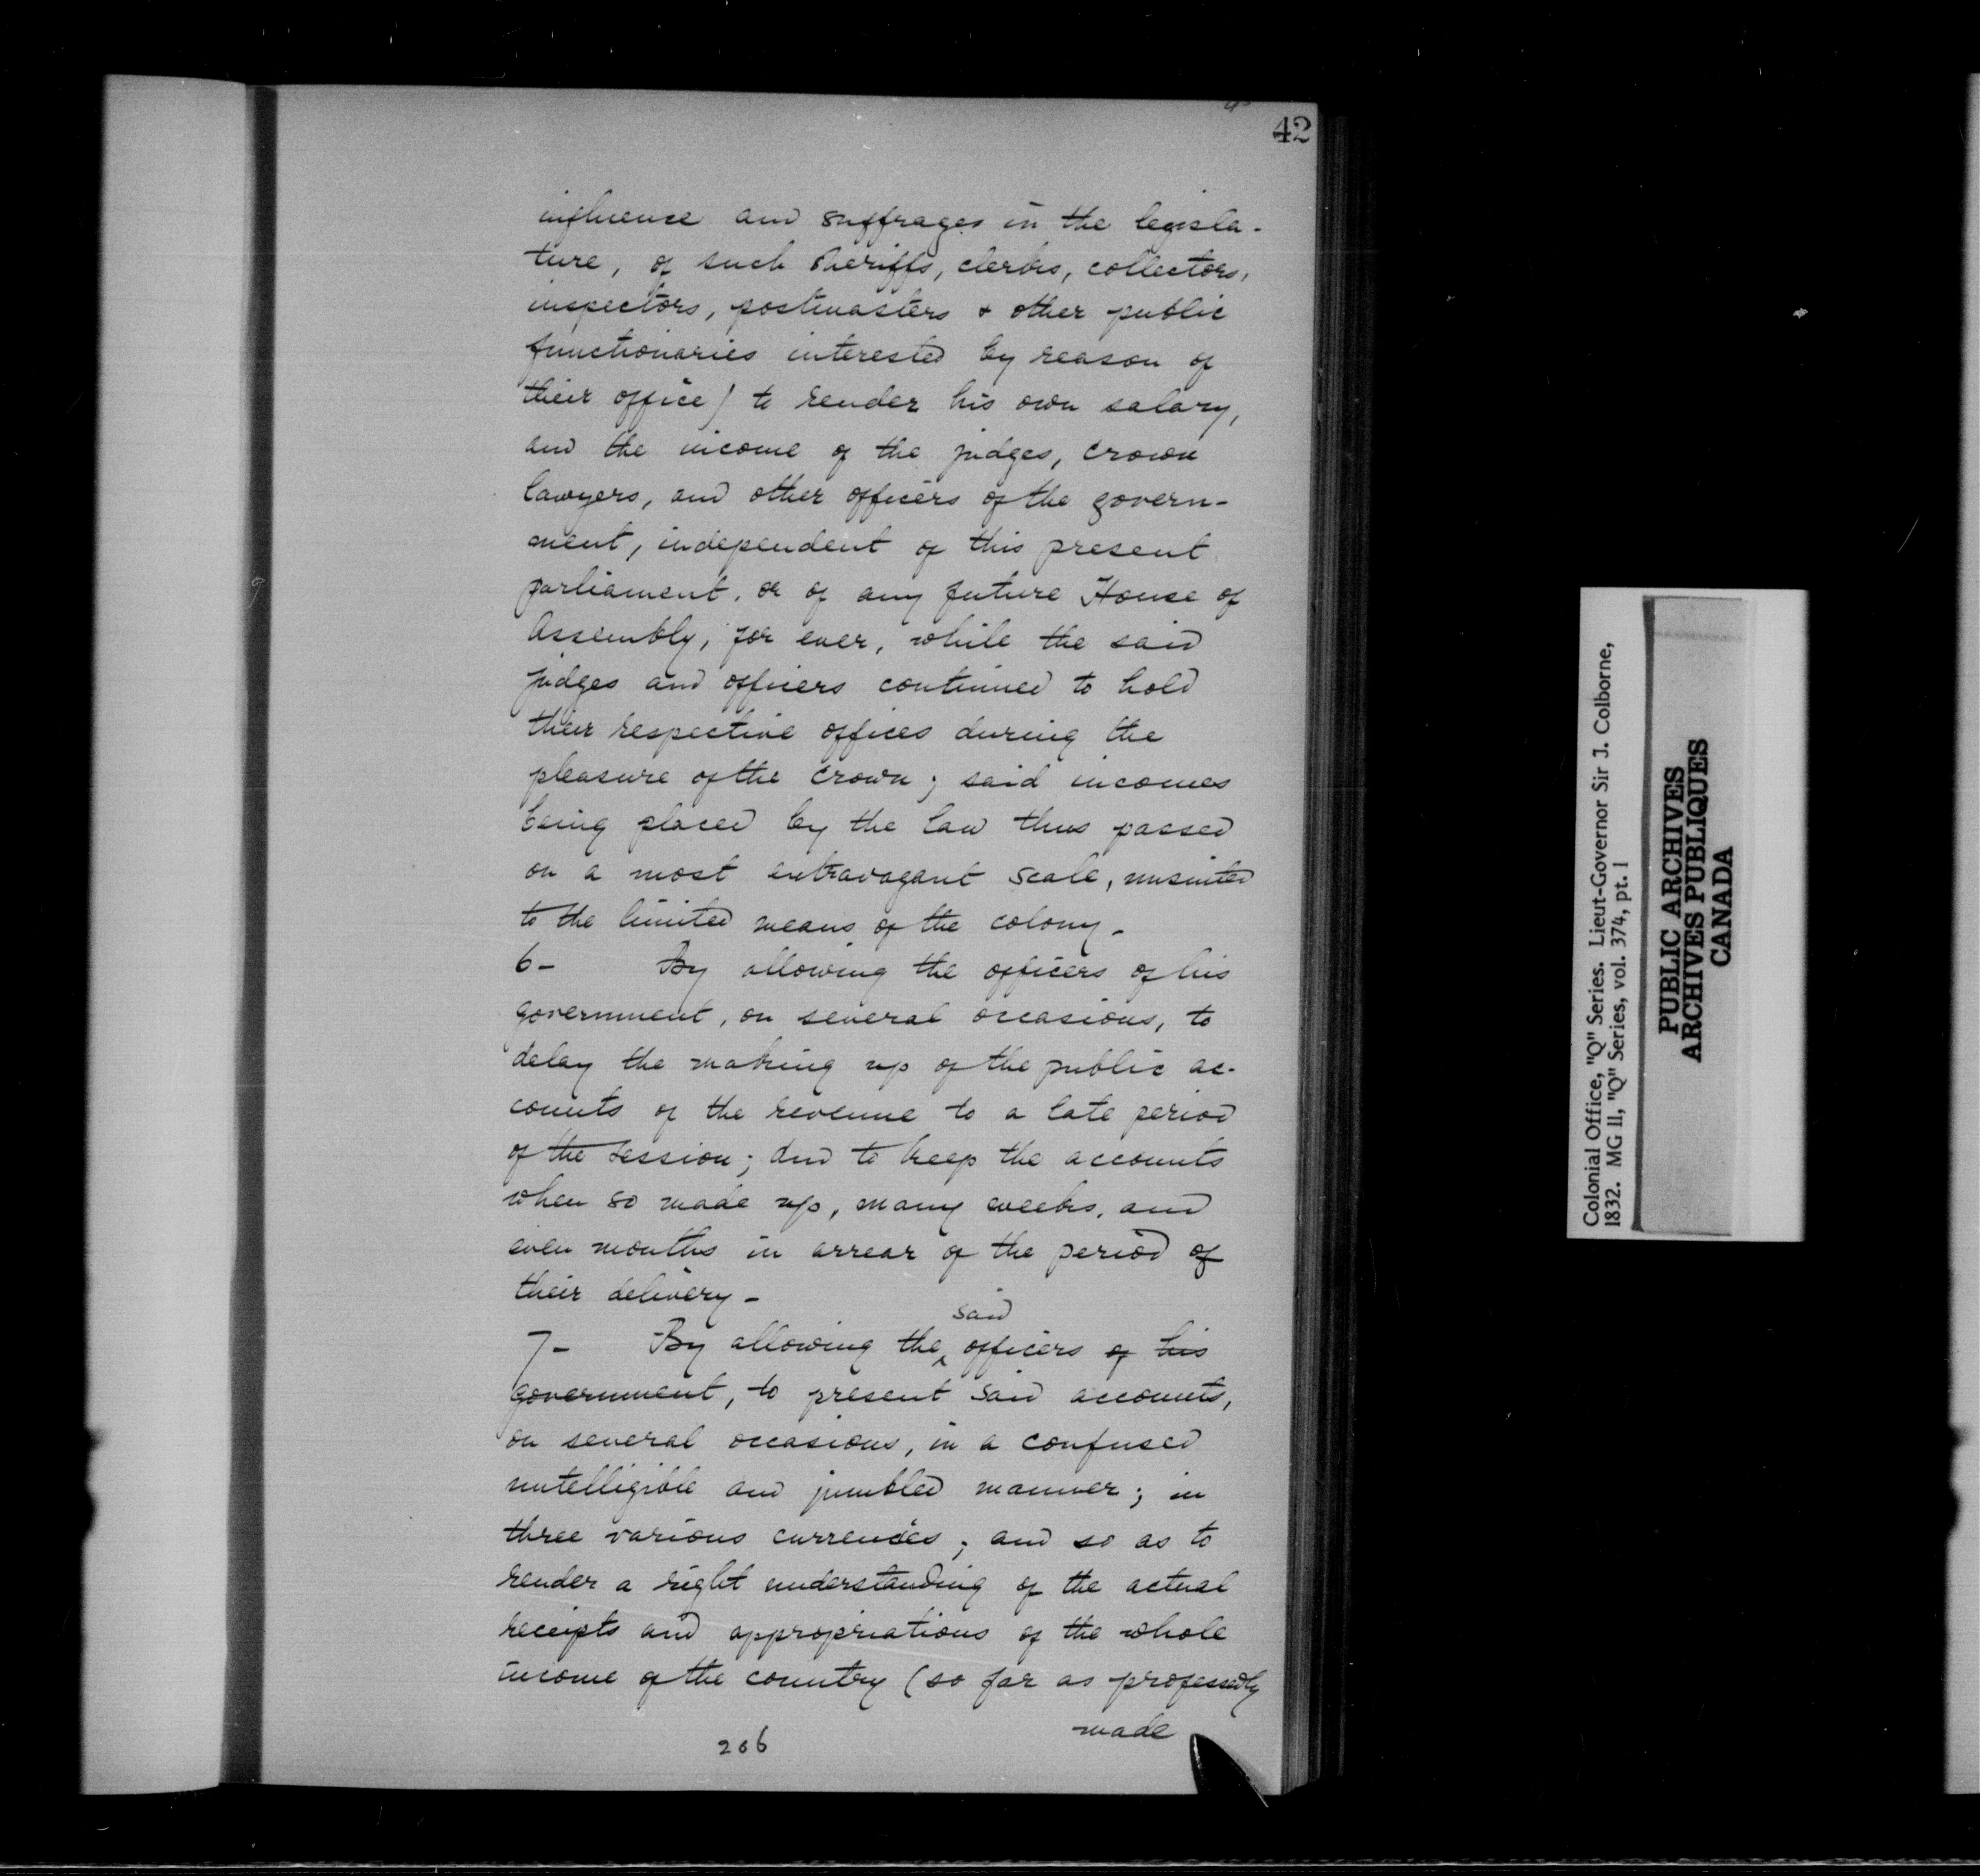 42
influence and suffrages in the legisla-
ture, of such sheriffs, clerks, collectors,
inspectors, postmasters & other public
functionaries interested by reason of
their office) to render his own salary,
and the income of the judges, crown
lawyers, and other officers of the govern-
ment, independent of this present
parliament, or of any future House of
Assembly, for ever, while the said
judges and officers continued to hold
their respective offices during the
pleasure of the crown; said incomes
being placed by the law thus passed
on a most extravagant scale, unsuited
to the limited means of the colony.
6- By allowing the officers of his
government, on several occasions, to
delay the making up of the public ac-
counts of the revenue to a late period
of the session; and to keep the accounts
when so made up, many weeks, and
even months in arrear of the period of
their delivery-
said
7- By allowing the officers of his
government, to present said accounts,
on several occasions, in a confused
untelligible and jumbled manner; in
three various currencies; and so as to
render a right understanding of the actual
receipts and appropriations of the whole
income of the country (so far as professedly
made
206
Colonial Office, "Q" Series. Lieut-Governor Sir J. Colborne,
1832. MG 11, "Q" Series, vol. 374, pt. 1
PUBLIC ARCHIVES
ARCHIVES PUBLIQUES
CANADA